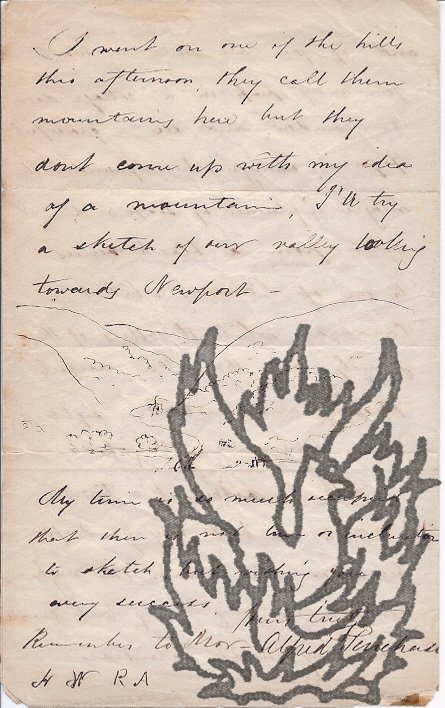 I went on one of the hills
this afternoon, they call them
mountains here but they
dont come up with my idea
of a mountain, I'll try
a sketch of our valley looking
towards Newport -
My time is so much occupied
that there is not time or
to sketch wishing you
every success.
Yours truly
Remember to Alfred